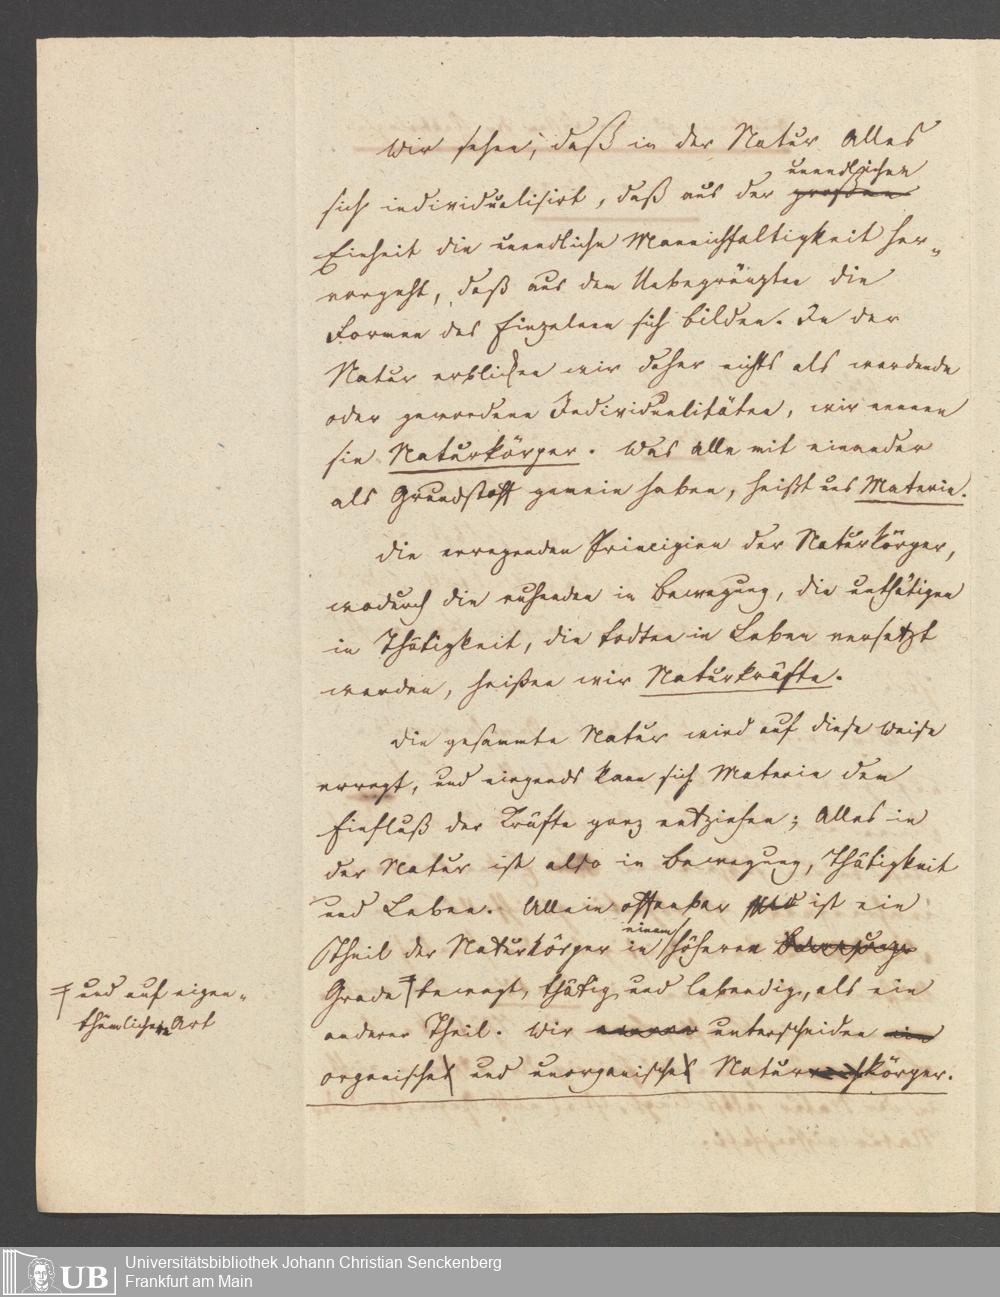 Wir sehen, daß in der Natur Alles
sich individualisirt, daß aus der großen unendlichen
Einheit die unendliche Mannichfaltigkeit her-
vorgeht, daß aus dem Unbegränzten die
Formen des Einzelnen sich bilden. In der
Natur erblicken wir daher nichts als werdende
oder gewordene Individualitäten, wir nennen
sie Naturkörper. Was alle mit einander
als Grundstoff gemein haben, heißt uns Materie.
Die erregenden Principien der Naturkörper,
wodurch die ruhenden in Bewegung, die unthätigen
in Thätigkeit, die todten in Leben versetzt
werden, heißen wir Naturkräfte.
Die gesammte Natur wird auf diese Weise
erregt, und nirgends kann sich Materie dem
Einfluß der Kräfte ganz entziehen; Alles in
der Natur ist also in Bewegung, Thätigkeit
und Leben. Allein offenbar ist ein
Theil der Naturkörper in einem höheren Bewegungs
Grade bewegt, thätig und lebendig, als ein
und auf eigen-
thümliche Art
anderer Theil. Wir nennen unterscheiden ein
organische und unorganische Naturkörper.
Universitätsbibliothek Johann Christian Senckenberg
Frankfurt am Main
UB